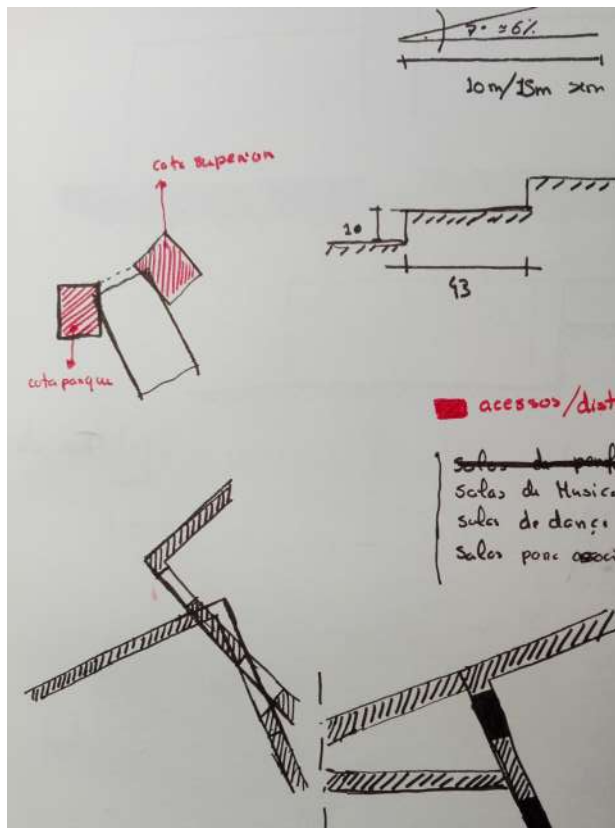 ≈6%
10m/15m
cota superior
10
43
cota parque
acessos/dist
salas de
salas de Musica
salas de dança
salas para associ